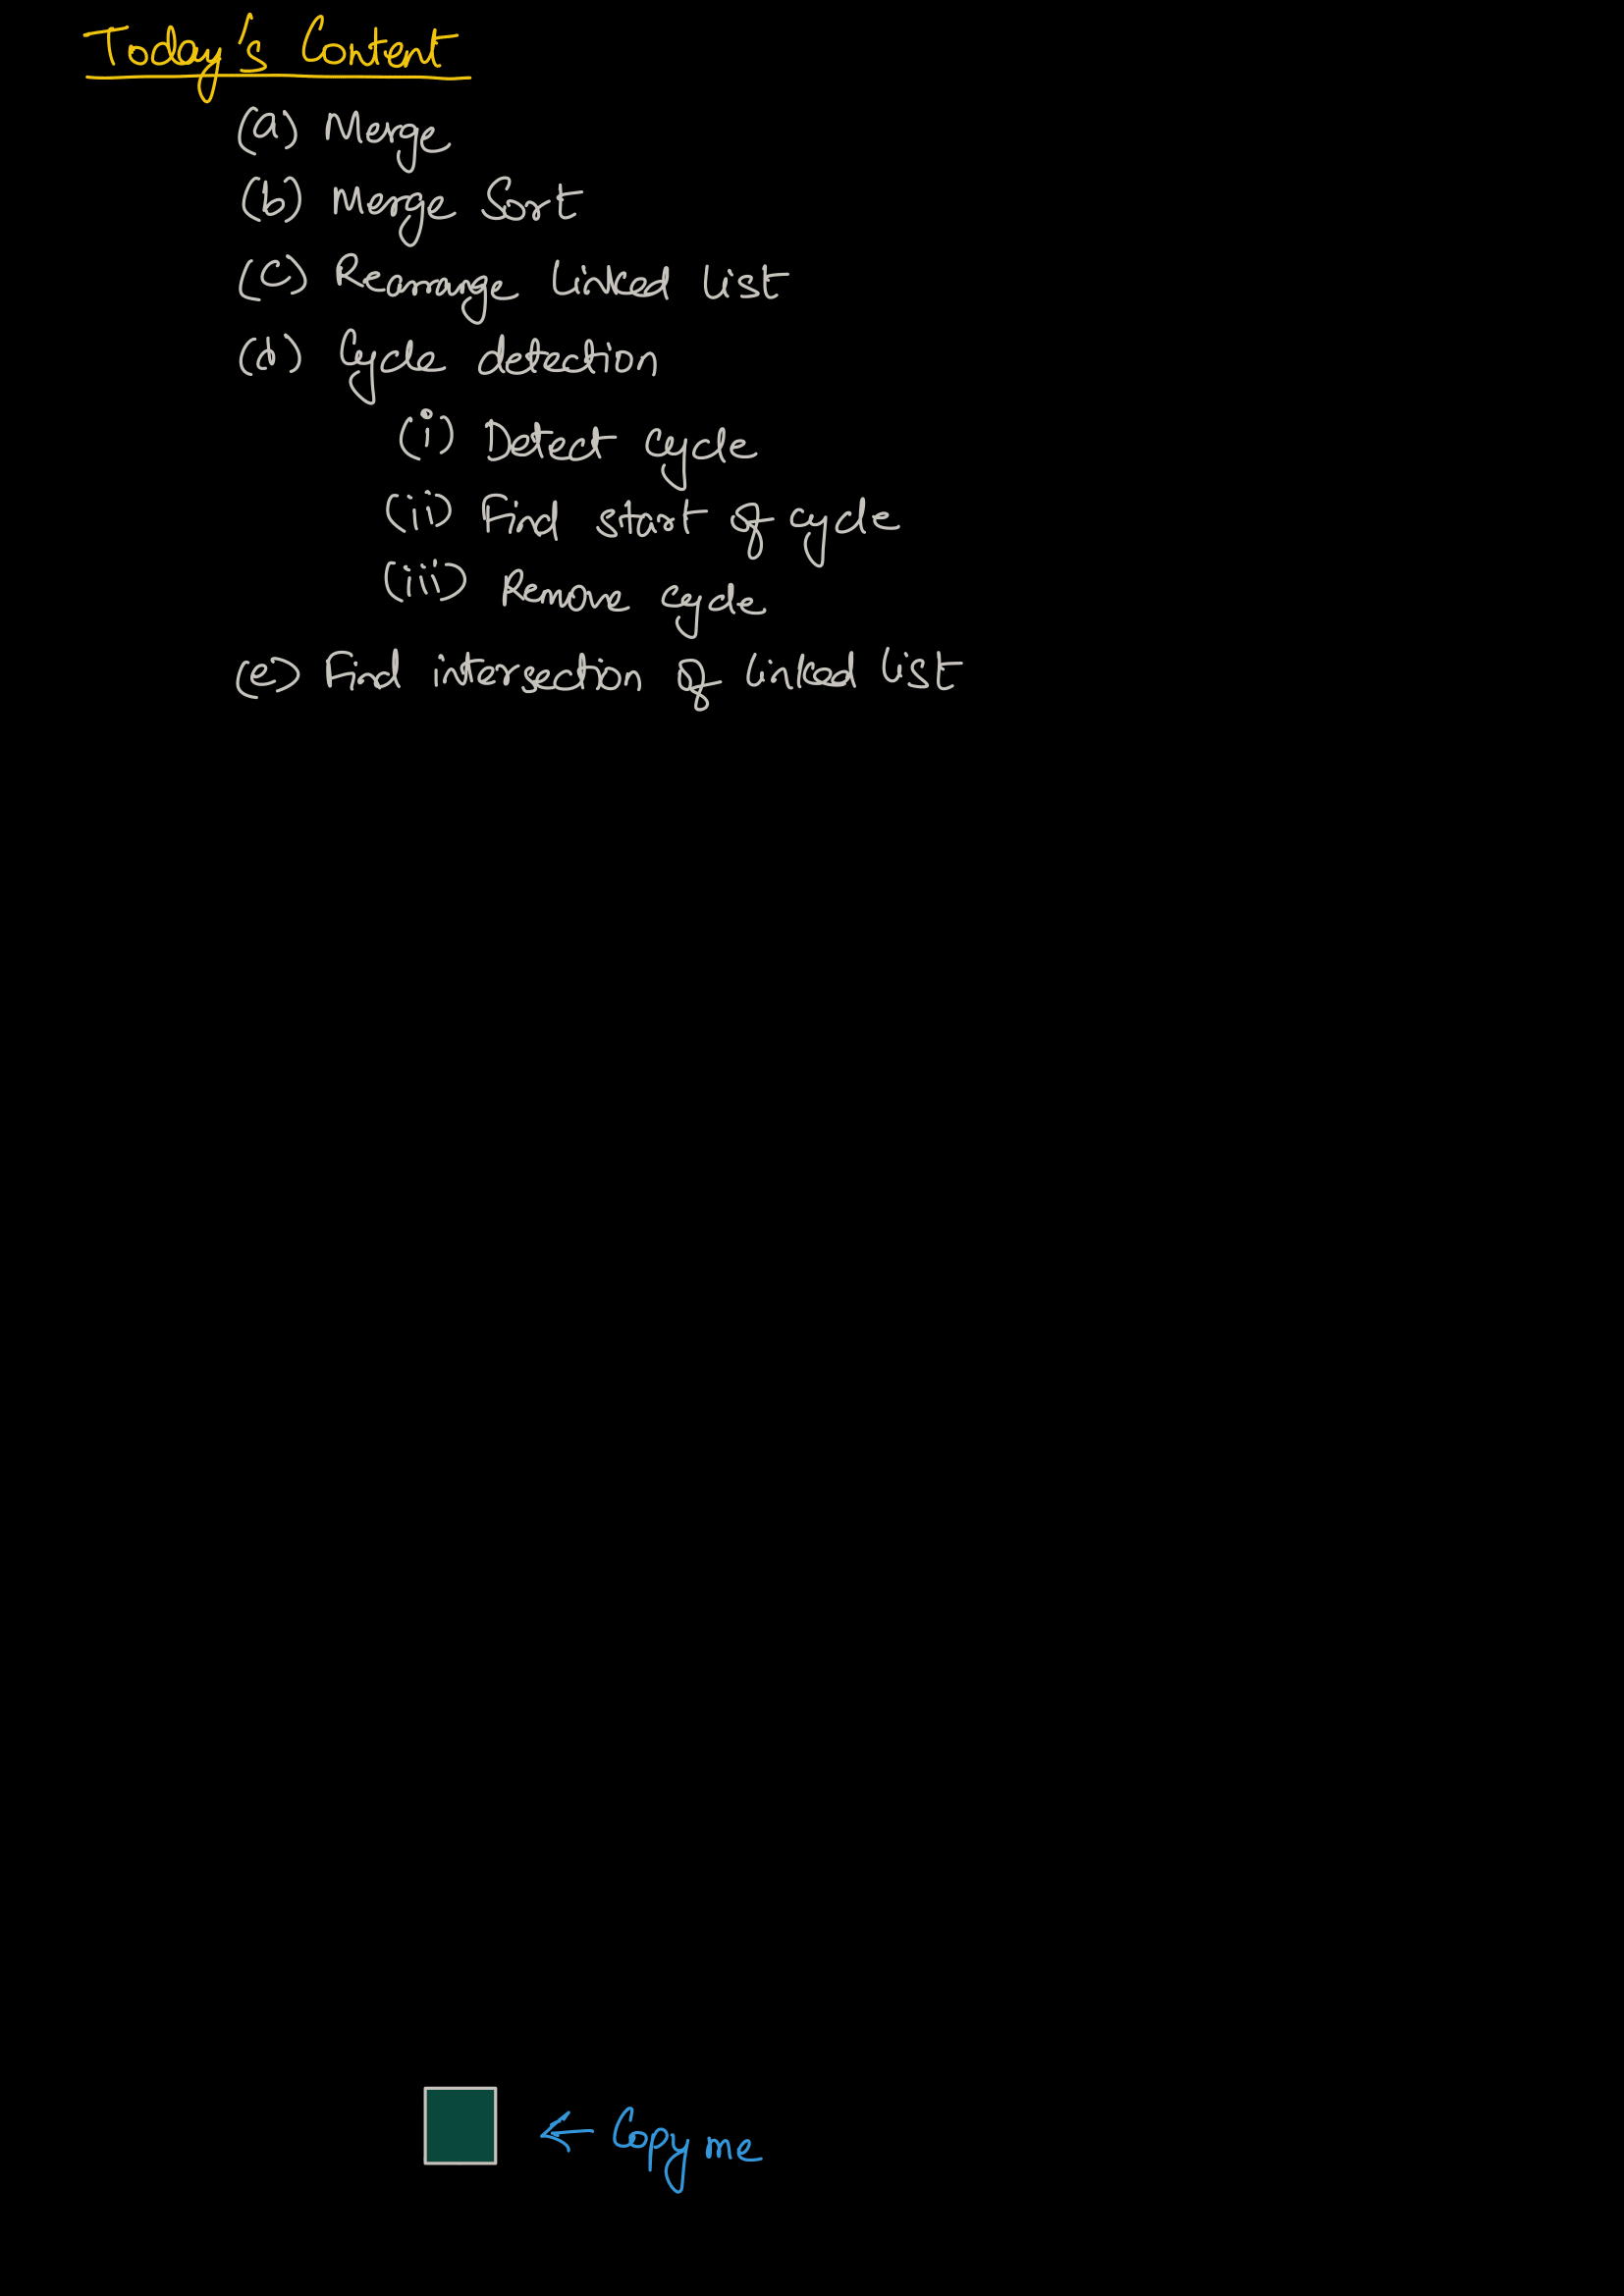 Today's Content
(a) Merge
(b) Merge Sort
(c) Rearrange linked list
(d) Cycle detection
(i) Detect cycle
(ii) Find start of cycle
(iii) Remove cycle
(e) Find intersection of linked list
← Copy me